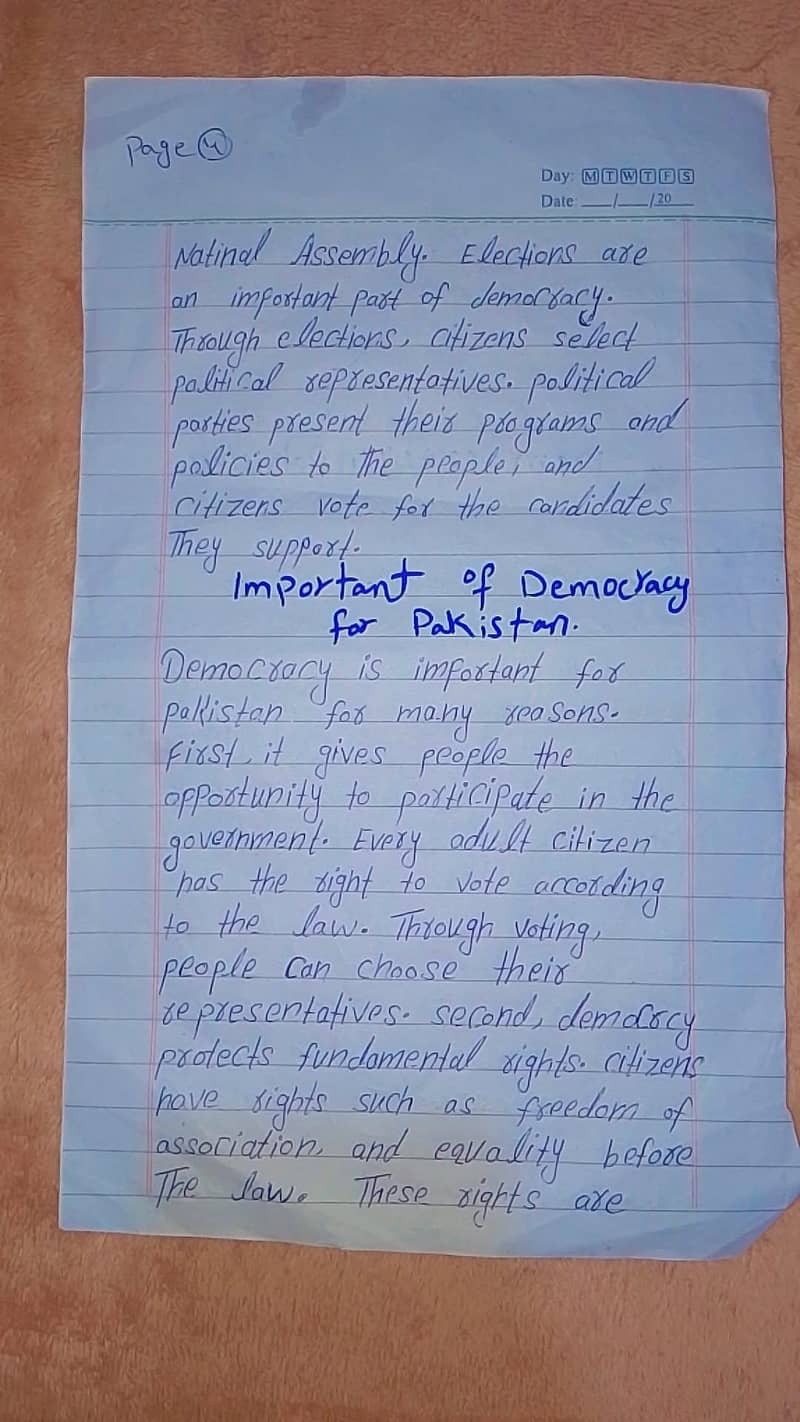 Page 4
Day: M T W T F S
Date: __/__/20__
Natinal Assembly. Elections are
an important part of democracy.
Through elections, citizens select
political representatives. political
parties present their programs and
policies to the people, and
citizens vote for the candidates
They support.
Important of Democracy
for Pakistan.
Democracy is important for
pakistan for many reasons.
First, it gives people the
opportunity to participate in the
government. Every adult citizen
has the right to vote according
to the law. Through voting,
people can choose their
representatives. second, democrcy
protects fundamental rights. citizens
have rights such as freedom of
association, and equality before
The law. These rights are